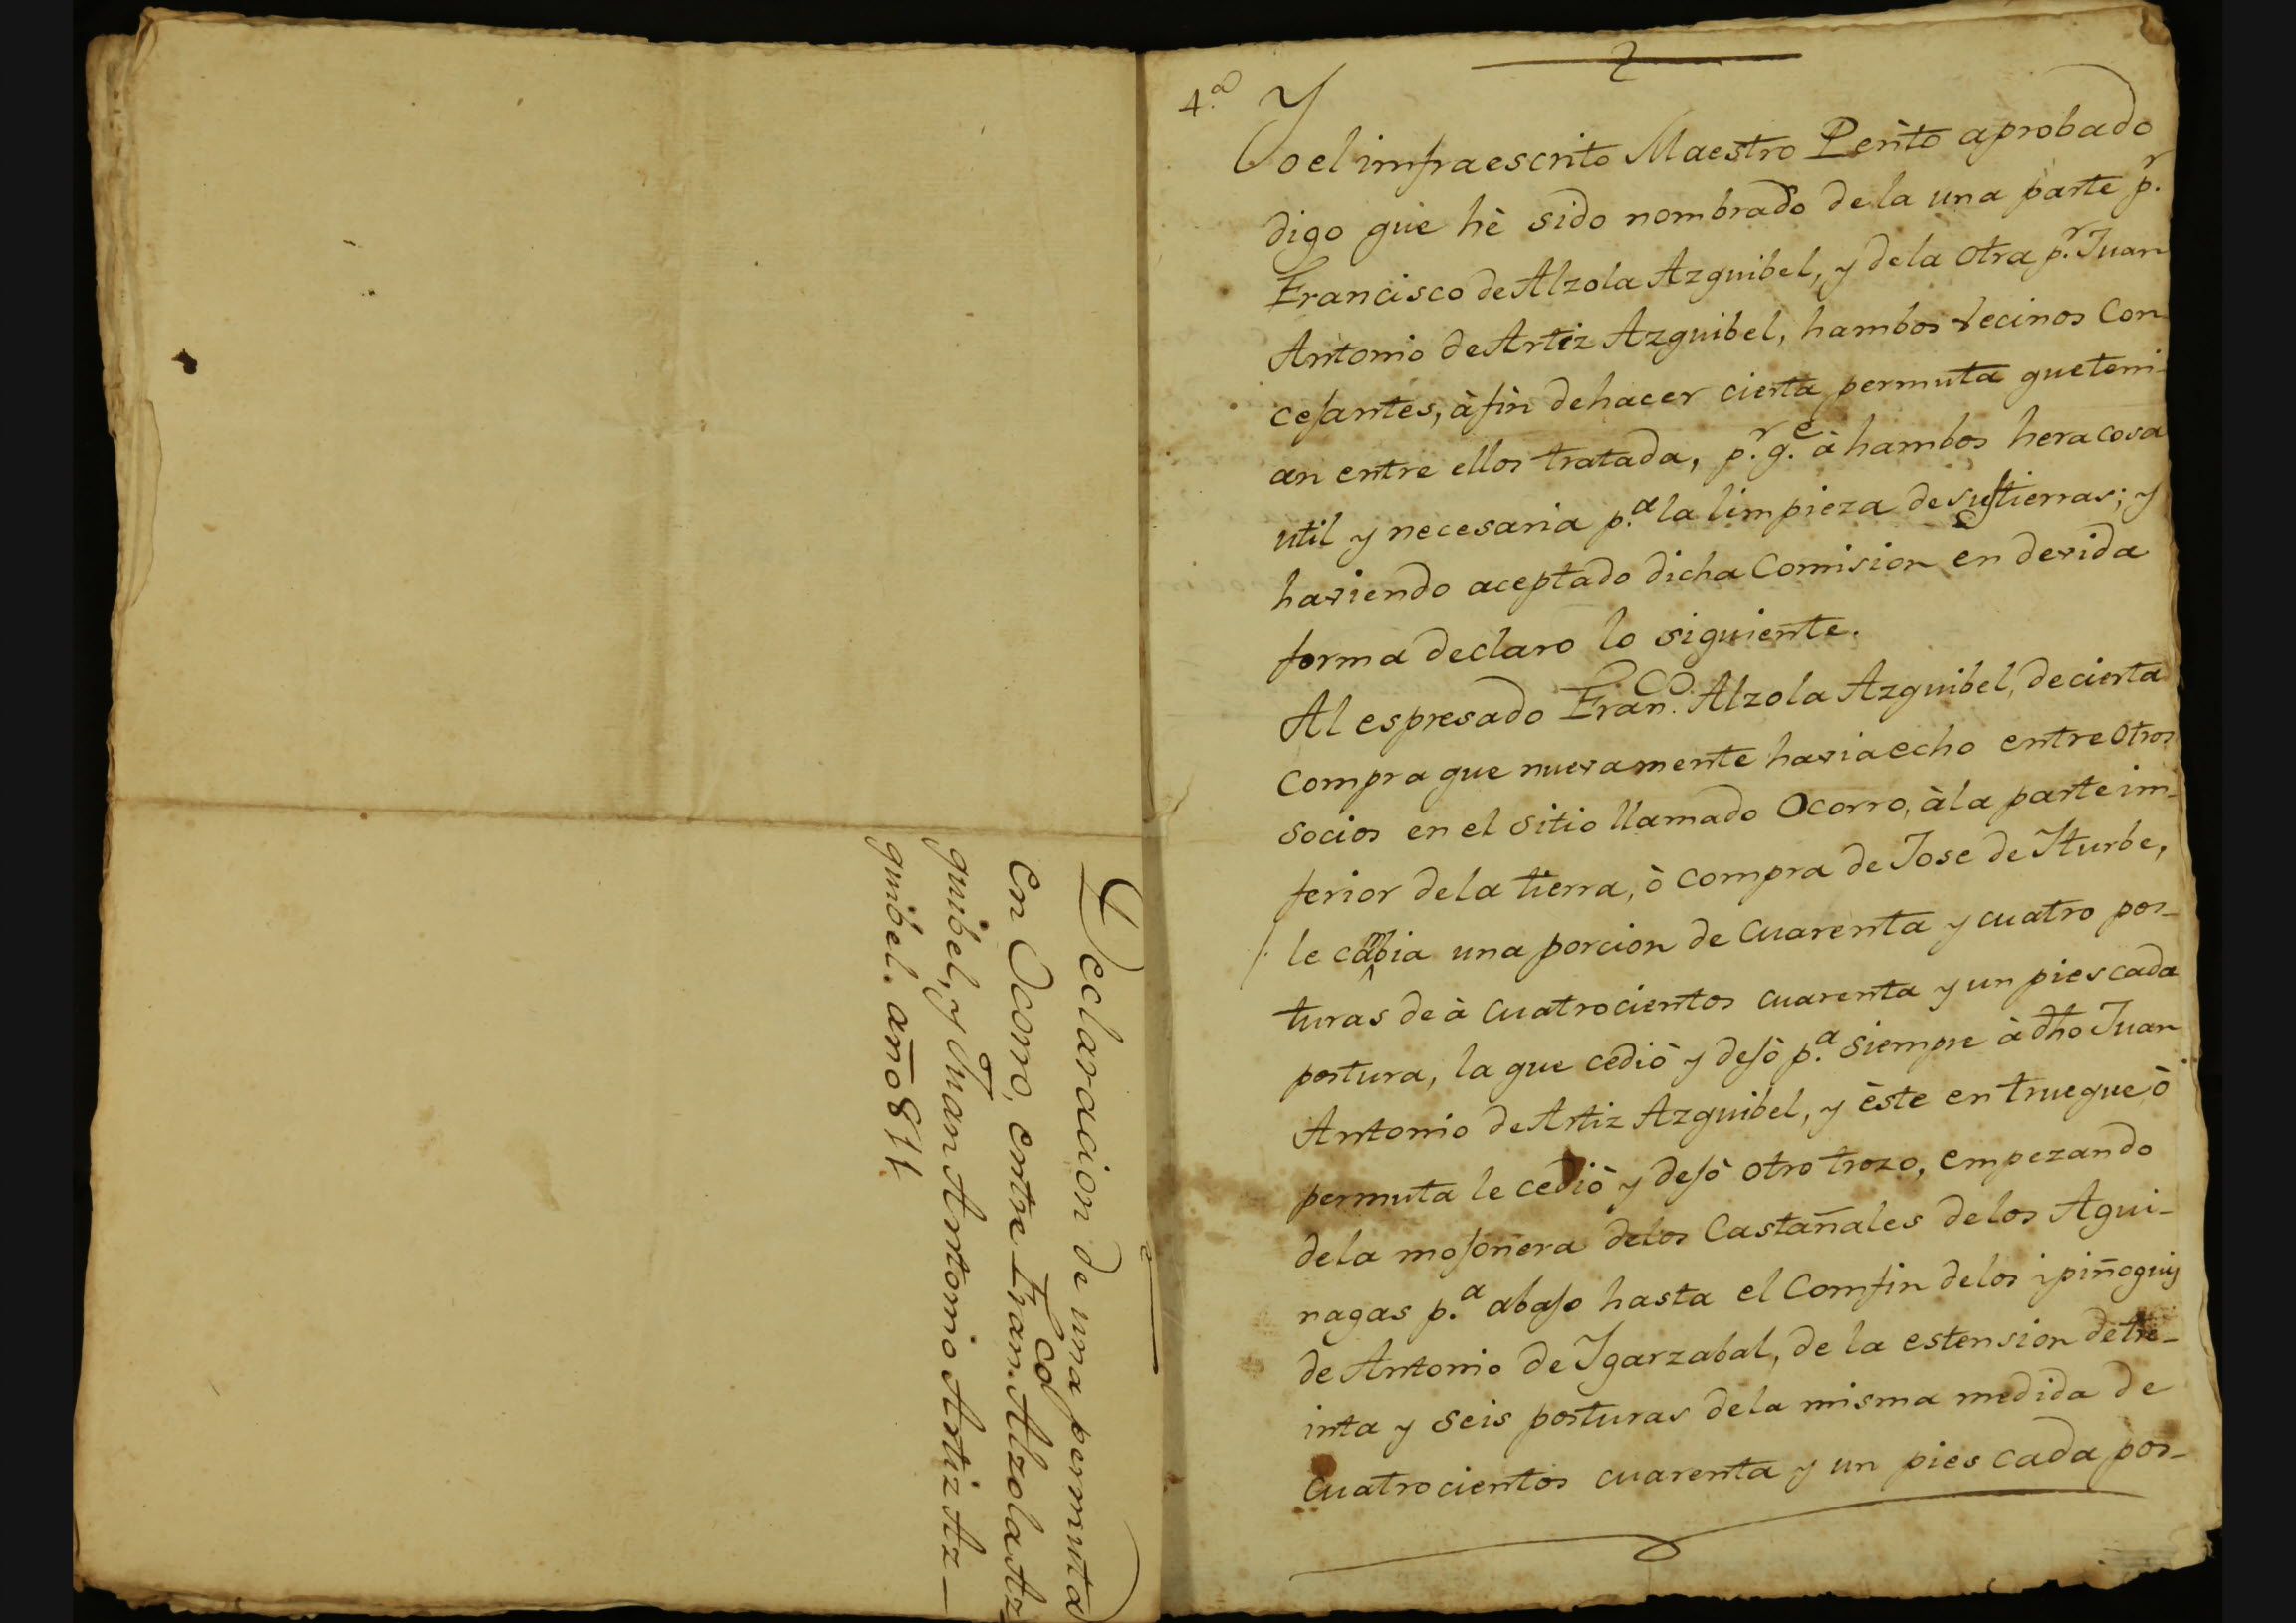 Declaracion de una permuta
en Ocorro, entre Fran.co Alzola Az
guibel, y Juan Antonio Artiz Az—
guibel. año 811
4.a
Yo el imfraescrito Maestro Perito aprobado
digo que hè sido nombrado de la una parte p.r
Francisco de Alzola Azguibel, y dela otra p.r Juan
Antonio de Artiz Azguibel, hambos vecinos Con
cejantes, à fin de hacer cierta permuta que teni-
an entre ellos tratada, p.r q.e à hambos hera cosa
util y necesaria p.a la limpieza de sus tierras; y
haviendo aceptado dicha Comision en devida
forma declaro lo siguiente.
Al espresado Fran.co Alzola Azguibel, de cierta
compra que nuevamente havia echo entre otros
socios en el sitio llamado Ocorro, à la parte im-
ferior dela tierra, ò compra de Jose de Yturbe,
le cabia una porcion de cuarenta y cuatro pos-
turas de à cuatrocientos cuarenta y un pies cada
postura, la que cediò y dejò p.a siempre à dho Juan
Antonio de Artiz Azguibel, y èste en trueque ò
permuta le cediò y dejò otro trozo, empezando
dela mojonera delos Castañales delos Agui-
nagas p.a abajo hasta el Comfin delos ipiñoguij
de Antonio de Ygarzabal, de la estension de tre-
inta y seis posturas dela misma medida de
cuatrocientos cuarenta y un pies cada pos-